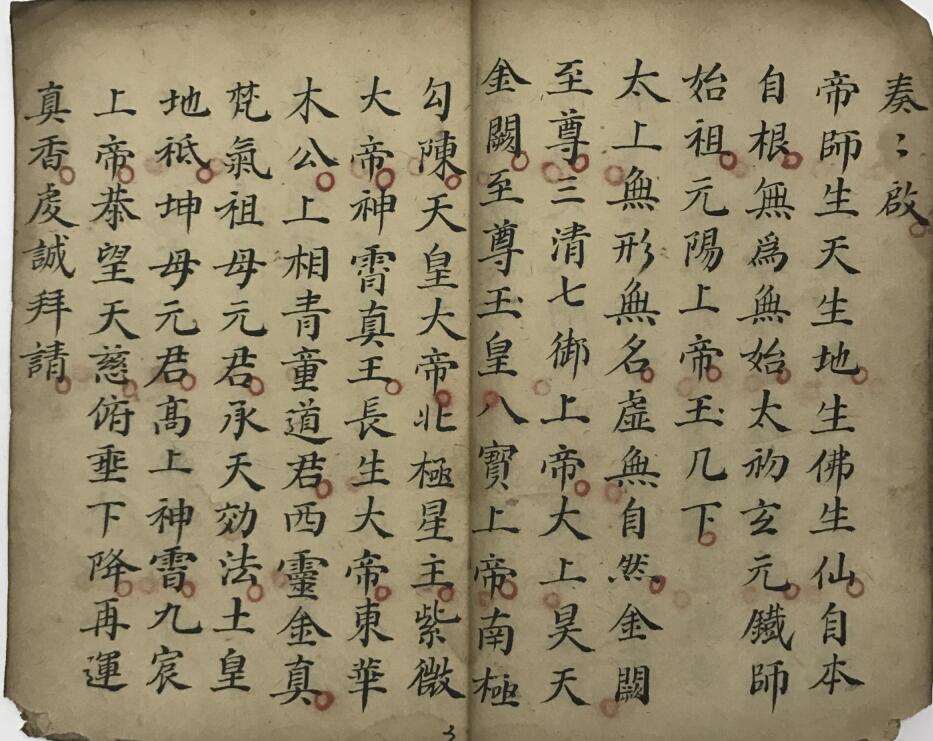 奏〻啟
帝師生天生地生佛生仙自本
自根無爲無始太初玄元鐵師
始祖元陽上帝玉几下
太上無形無名虛無自然金闕
至尊三清七御上帝大上昊天
金闕至尊玉皇八寶上帝南極
勾陳天皇大帝北極星主紫微
大帝神霄真王長生大帝東華
木公上相青童道君西靈金真
梵氣祖母元君承天効法土皇
地祗坤母元君高上神霄九宸
上帝恭望天慈俯垂下降再運
真香虔誠拜請